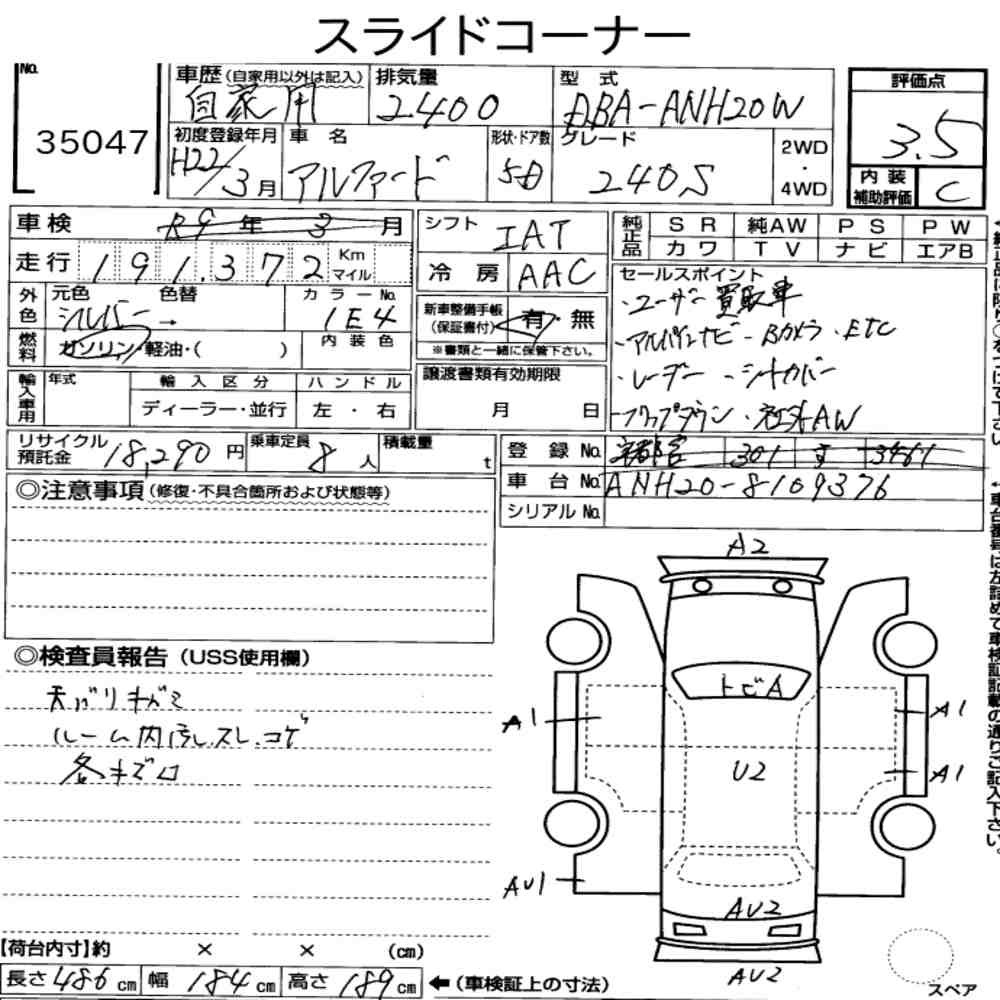 スライドコーナー
No.
35047
車歴 (自家用以外は記入)
自家用
排気量
2400
型式
DBA-ANH20W
評価点
3.5
内装補助評価
C
初度登録年月
H22/3月
車名
アルファード
形状・ドア数
5D
グレード
240S
2WD
・
4WD
車検 R9年3月
走行 191.372 Km マイル
外色 元色 色替 カラーNo.
シルバー → 1E4
燃料 ガソリン・軽油・( ) 内装色
シフト IAT
冷房 AAC
新車整備手帳(保証書付) 有・無
※書類と一緒に保管下さい。
純正品 SR 純AW PS PW
カワ TV ナビ エアB
セールスポイント
・ユーザー買取車
・アルパインナビ・Bカメラ・ETC
・レーダー・シートカバー
・フリップダウン・社外AW
輸入車用 年式 輸入区分 ハンドル
ディーラー・並行 左・右
譲渡書類有効期限
月 日
リサイクル預託金 18,290円 乗車定員 8人 積載量 t
登録No. 宇都宮 301 す
車台No. ANH20-8109376
シリアルNo.
◎注意事項(修復・不具合箇所および状態等)
◎検査員報告(USS使用欄)
天バリキバミ
ルーム内汚レ.スレ.コゲ
各キズ凹
A2
トビA
A1
A1
U2
A1
AU1
AU2
AU2
スペア
【荷台内寸】約 × × (cm)
長さ486cm 幅184cm 高さ189cm ←(車検証上の寸法)
車台番号は左詰めで車検証記載の通りご記入下さい。